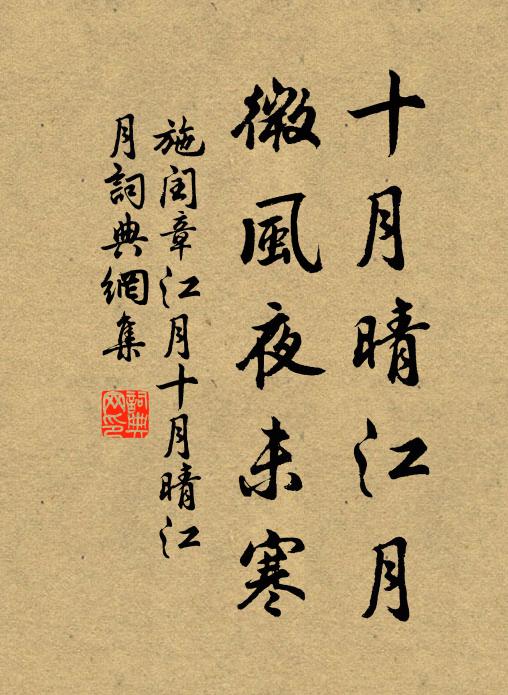 十月晴江月
微風夜未寒
施閏章江月十月晴江
月詞典網集
詞典
网印